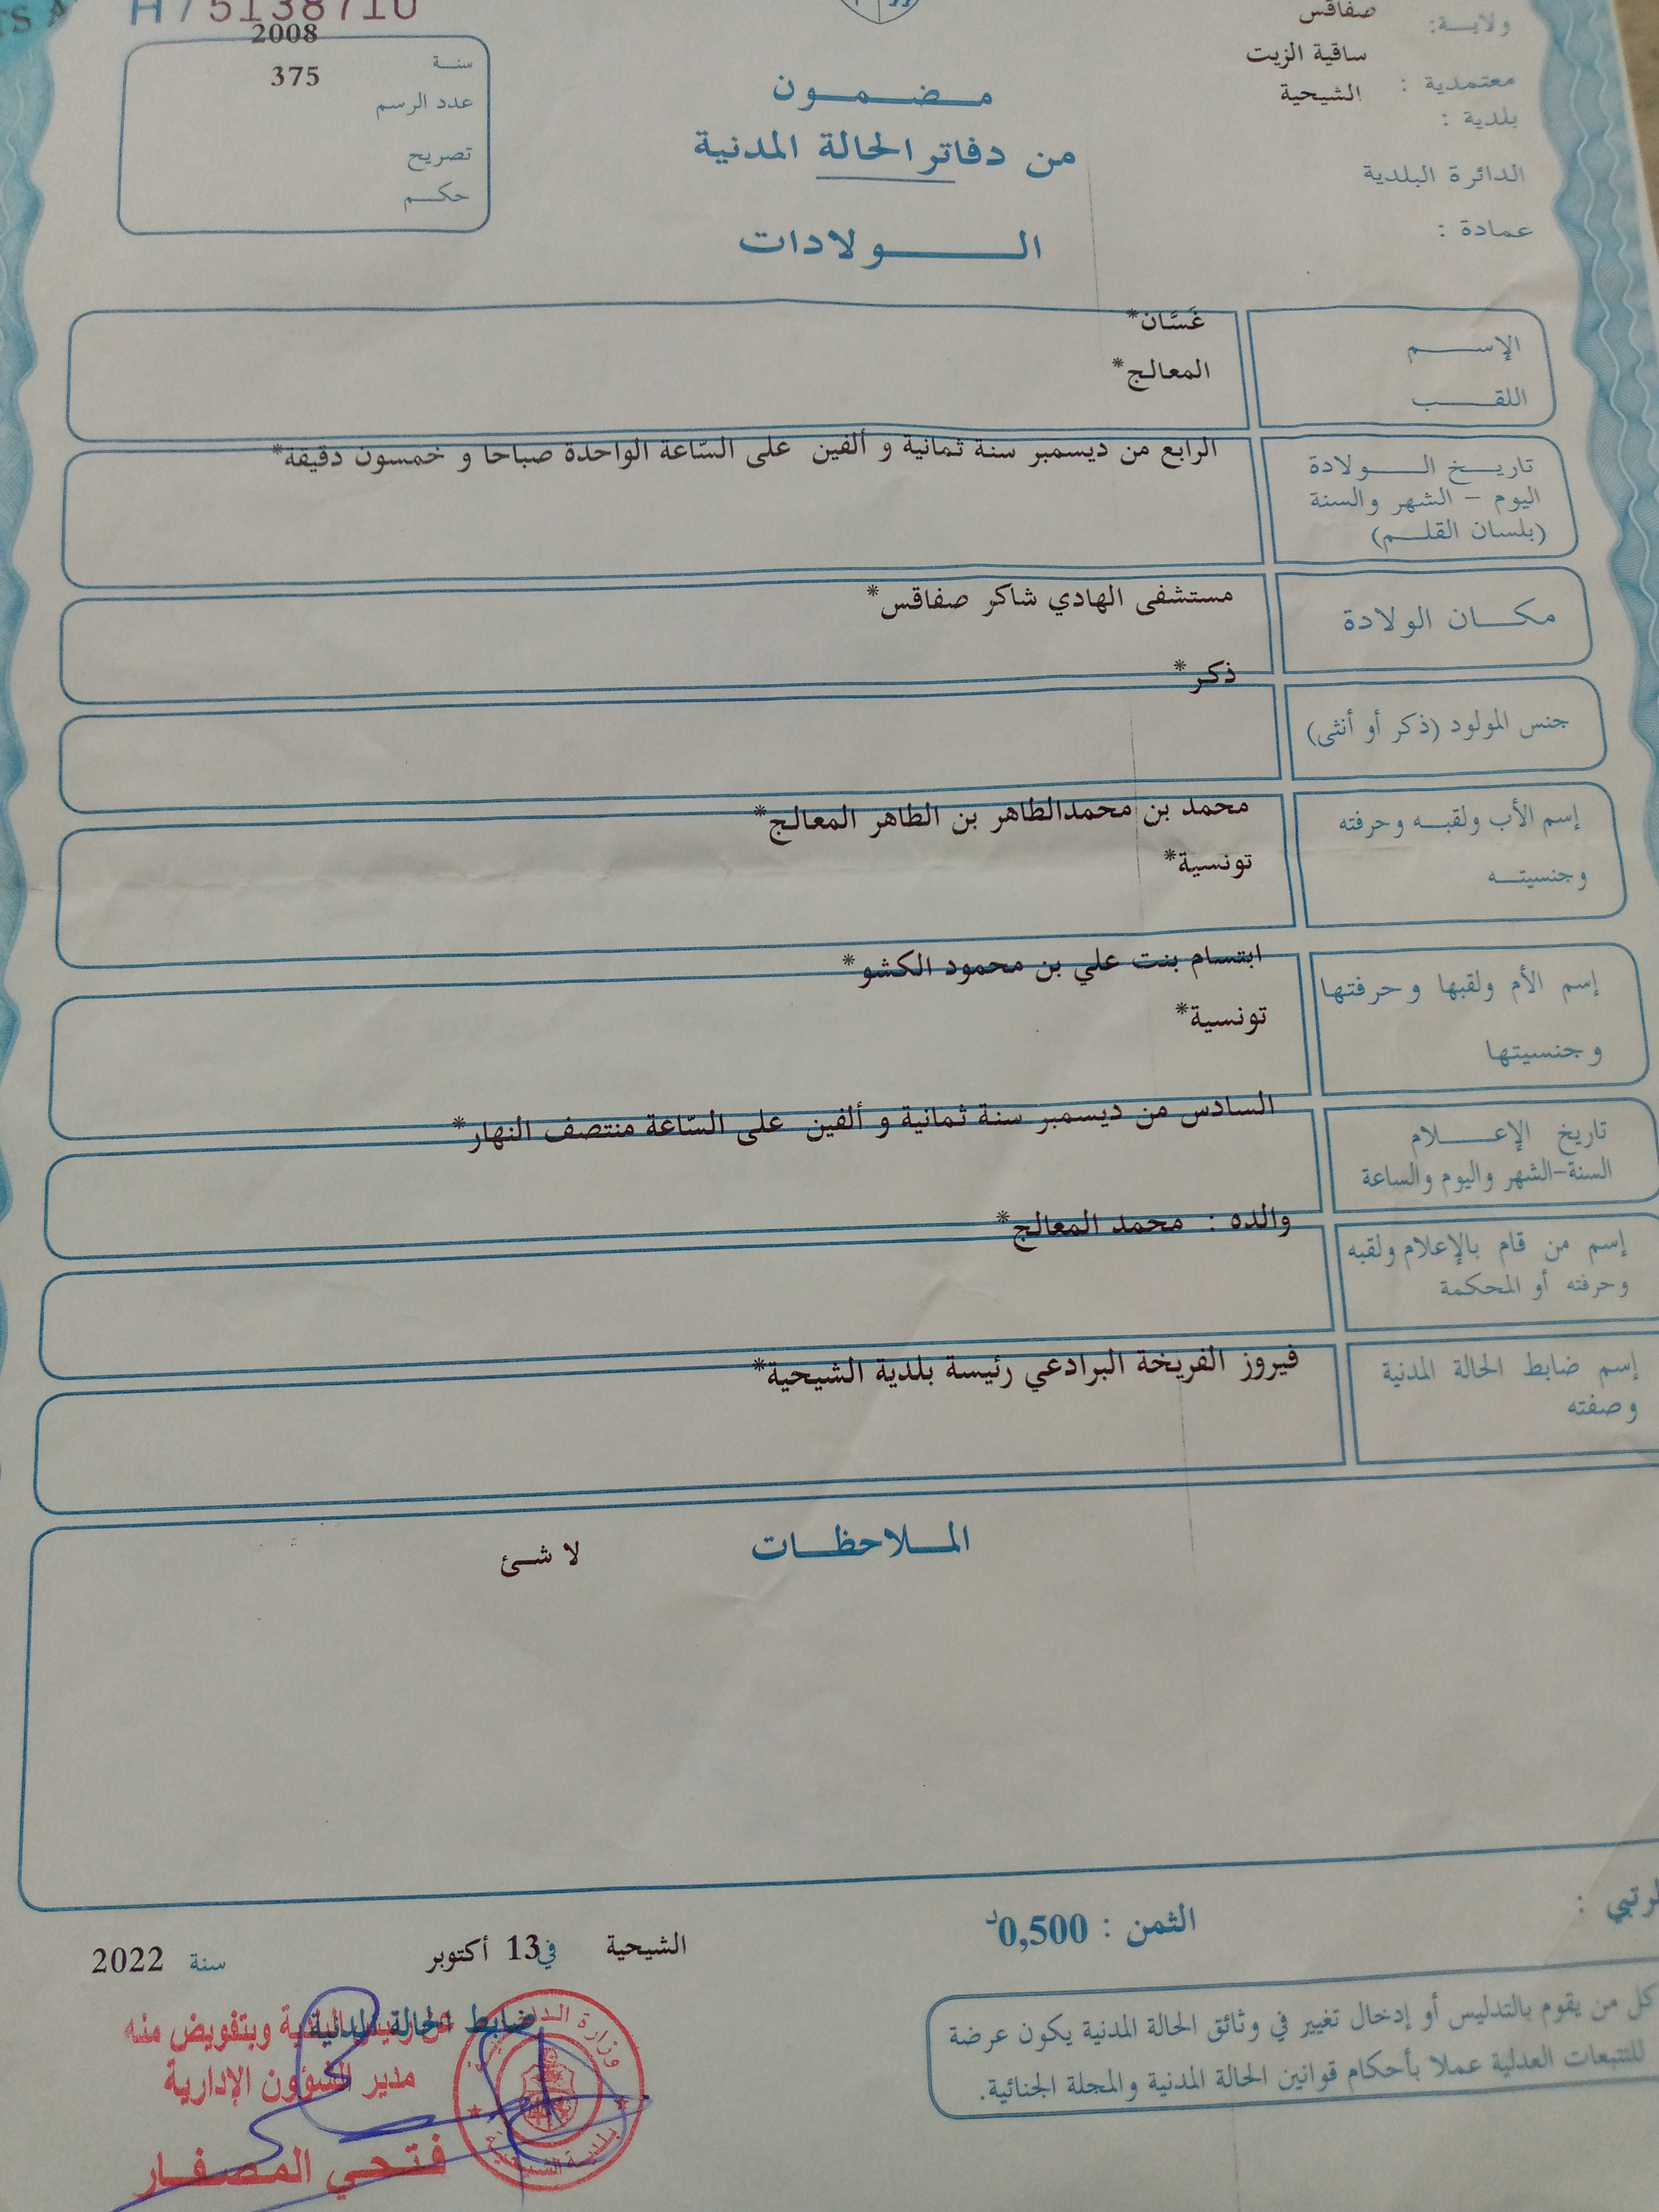 H75138710
ولايـــة: صفاقس
معتمدية : ساقية الزيت
بلدية : الشيحية
الدائرة البلدية
عمادة :
سنـــة 2008
عدد الرسم 375
تصريح
حكـــم
مـــضـــمـــون
من دفاتر الحالة المدنية
الـــــولادات
الإســـــم غَسَّان*
اللقـــــب المعالج*
تاريـــخ الـــــولادة
اليوم – الشهر والسنة
(بلسان القلـــم)
الرابع من ديسمبر سنة ثمانية و ألفين على السّاعة الواحدة صباحا و خمسون دقيقة*
مكـــان الولادة
مستشفى الهادي شاكر صفاقس*
جنس المولود (ذكر أو أنثى)
ذكر*
إسم الأب ولقبـــه وحرفته
وجنسيتـــه
محمد بن محمدالطاهر بن الطاهر المعالج*
تونسية*
إسم الأم ولقبها وحرفتها
وجنسيتها
ابتسام بنت علي بن محمود الكشو*
تونسية*
تاريخ الإعـــــلام
السنة-الشهر واليوم والساعة
السادس من ديسمبر سنة ثمانية و ألفين على السّاعة منتصف النهار*
إسم من قام بالإعلام ولقبه
وحرفته أو المحكمة
والده : محمد المعالج*
إسم ضابط الحالة المدنية
وصفته
فيروز الفريخة البرادعي رئيسة بلدية الشيحية*
المـــلاحظـــات
لا شئ
الثمن : 0,500د
الشيحية في 13 أكتوبر سنة 2022
كل من يقوم بالتدليس أو إدخال تغيير في وثائق الحالة المدنية يكون عرضة
للتتبعات العدلية عملا بأحكام قوانين الحالة المدنية والمجلة الجنائية.
ضابط الحالة المدنية
وبتفويض منه
مدير الشؤون الإدارية
فتحي المصفار
وزارة
بلدية الشيحية